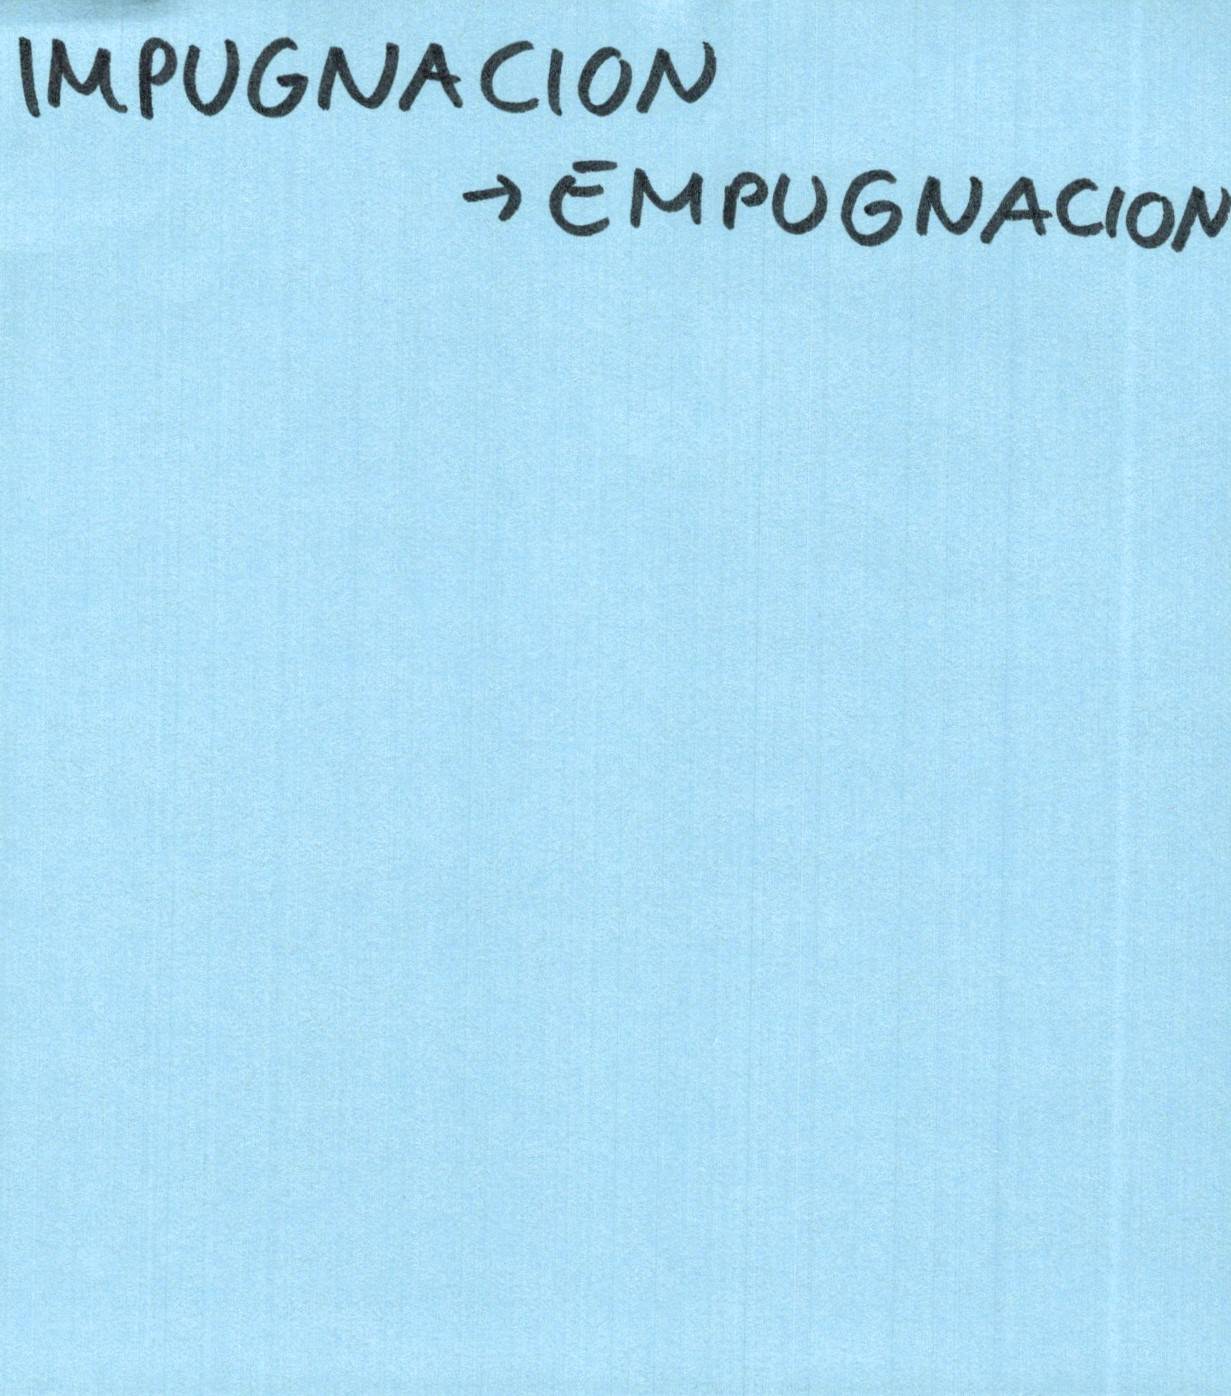 IMPUGNACION
→ EMPUGNACION